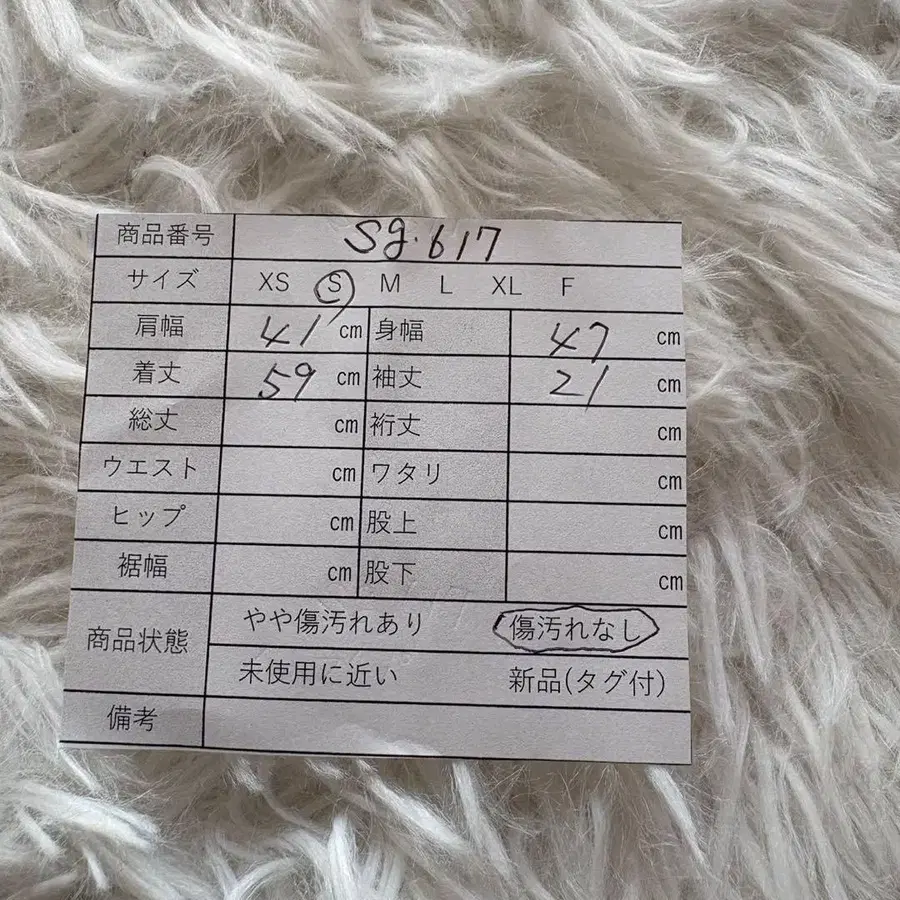 商品番号 Sg.617
サイズ XS S M L XL F
肩幅 41 cm 身幅 47 cm
着丈 59 cm 袖丈 21 cm
総丈 cm 裄丈 cm
ウエスト cm ワタリ cm
ヒップ cm 股上 cm
裾幅 cm 股下 cm
商品状態 やや傷汚れあり 傷汚れなし
未使用に近い 新品(タグ付)
備考